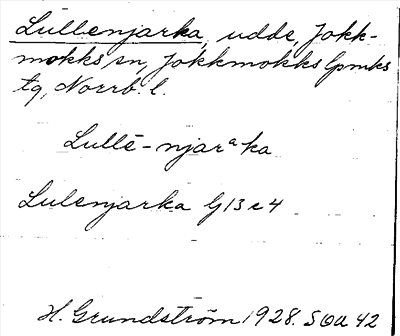 Lullenjarka, udde, Jokk-
mokks sn, Jokkmokks lpmks
tg, Norrb. l.
Lullē-njarᵃka
Lulenjarka G13e4
H. Grundström 1928. SOU 42